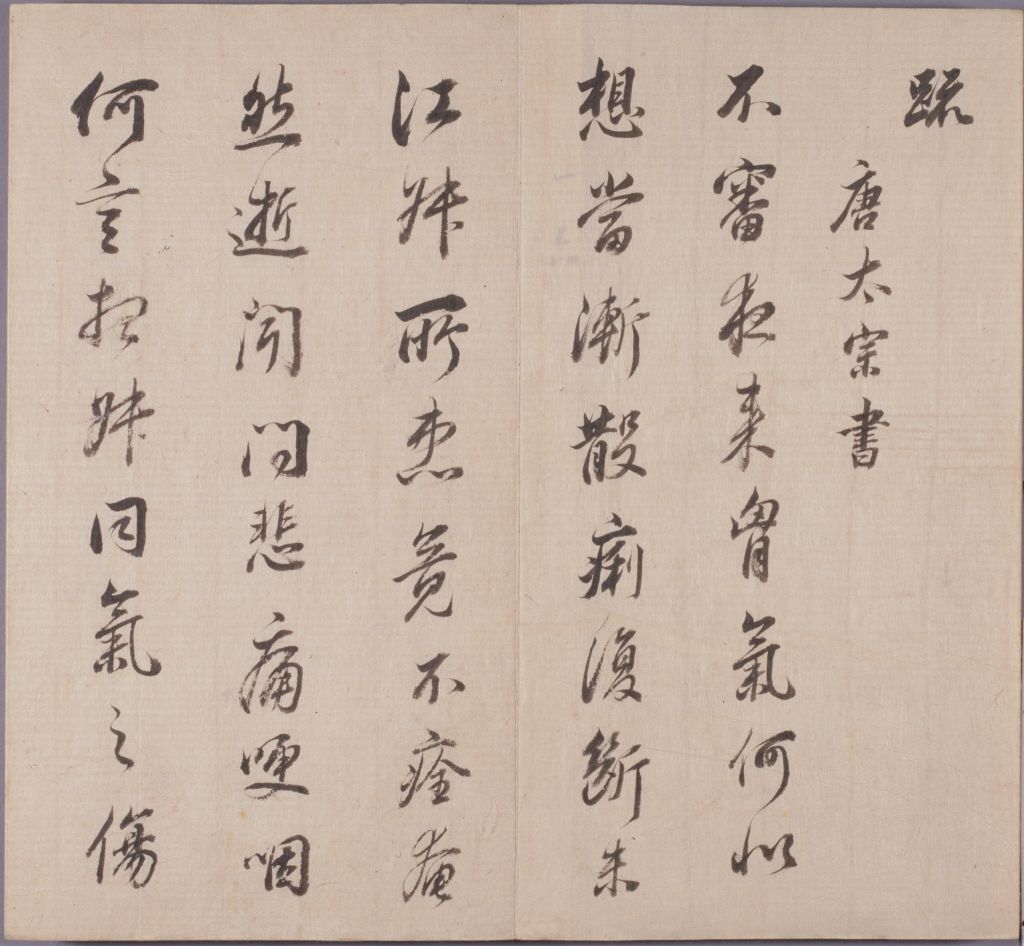 疏
唐太宗書
不審夜來胷氣何似
想當漸散痢復斷未
江姊所患竟不痊奄
然逝聞問悲痛哽咽
何言想姊同氣之傷